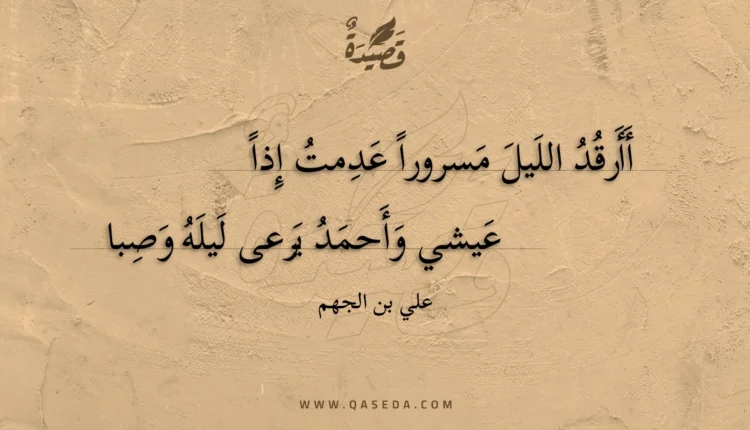 قَصِيدَةٌ
أَأَرقُدُ اللَيلَ مَسروراً عَدِمتُ إِذاً
عَيشي وَأَحمَدُ يَرعى لَيلَهُ وَصِبا
علي بن الجهم
WWW.QASEDA.COM